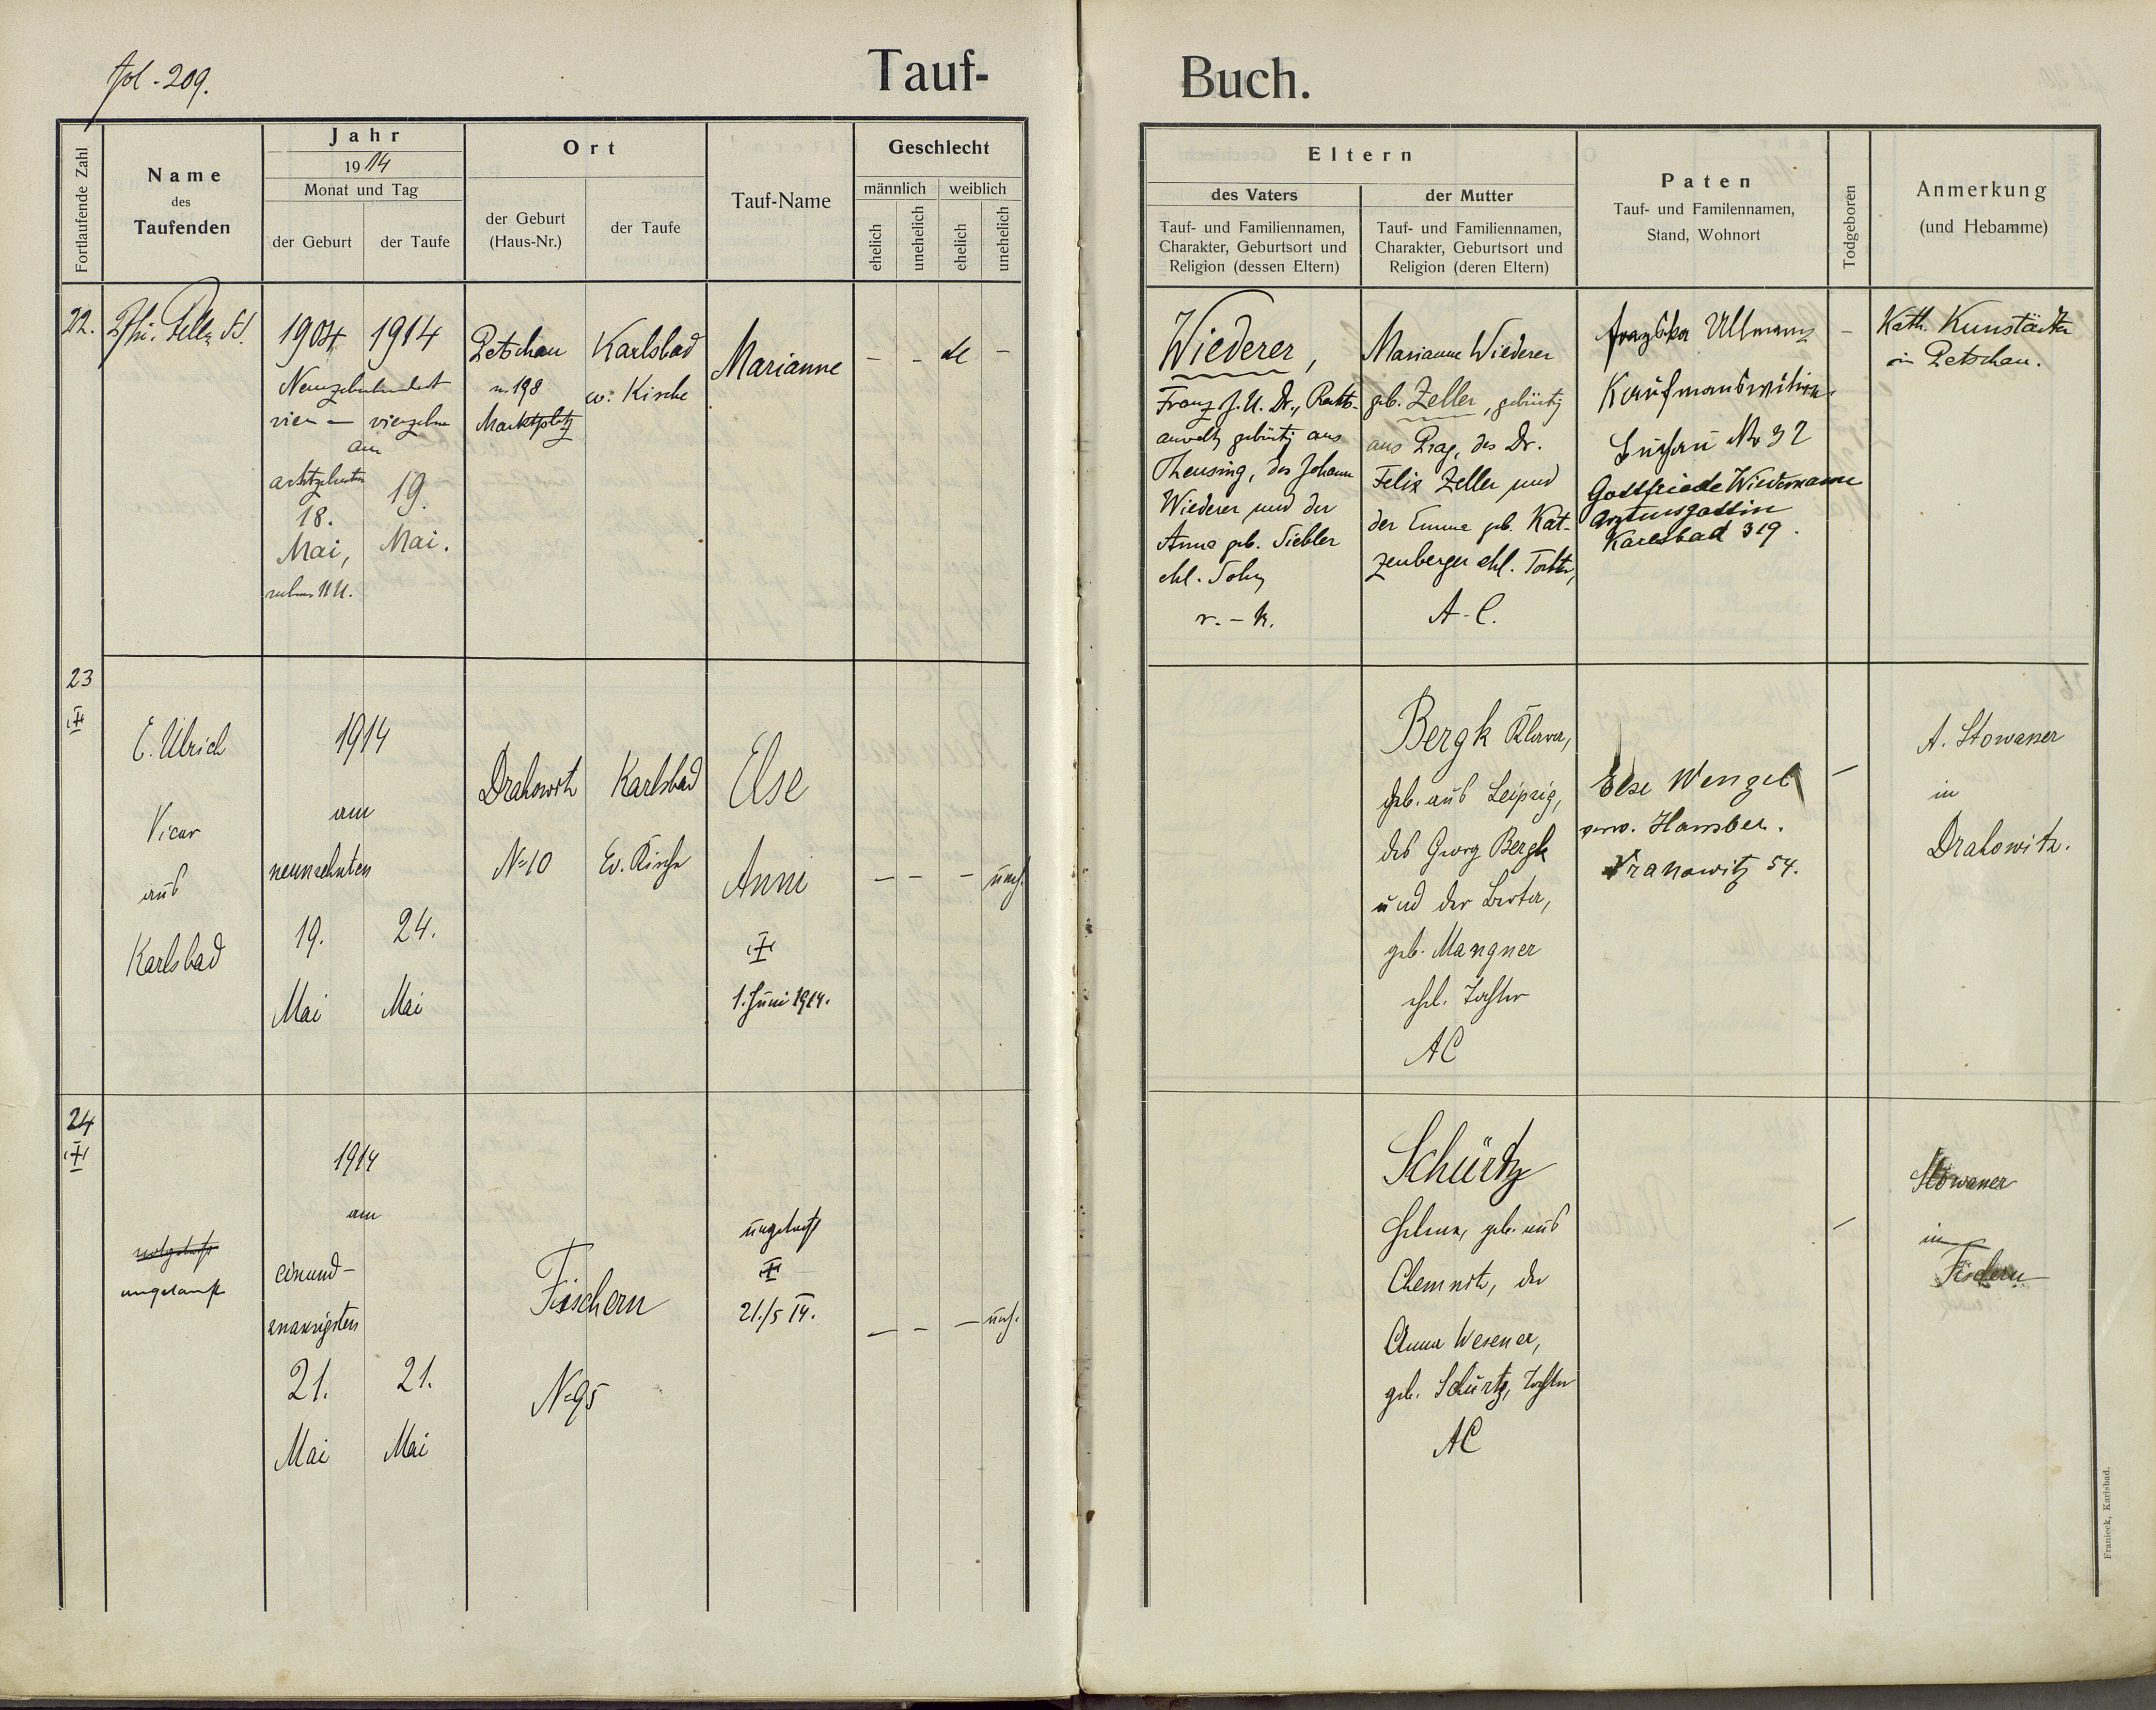 fol. 209.
Tauf-
Buch.
Fortlaufende Zahl
Name
des
Taufenden
Jahr
1914
Monat und Tag
der Geburt
der Taufe
Ort
der Geburt
(Haus-Nr.)
der Taufe
Tauf-Name
Geschlecht
männlich
weiblich
ehelich
unehelich
ehelich
unehelich
Eltern
des Vaters
Tauf- und Familiennamen,
Charakter, Geburtsort und
Religion (dessen Eltern)
der Mutter
Tauf- und Familiennamen,
Charakter, Geburtsort und
Religion (deren Eltern)
Paten
Tauf- und Familennamen,
Stand, Wohnort
Todgeboren
Anmerkung
(und Hebamme)
22.
1904
Neunzehnhundert
vier —
am
achtzehnten
18.
Mai,
1914
vierzehn
19.
Mai.
Petschau
198
Marktplatz
Karlsbad
ev. Kirche
Marianne
— - —
Wiederer,
Franz J. U. Dr., Rechts-
anwalt, gebürtig aus
Theusing, des Johann
Wiederer und der
Anna geb. Siebler
ehl. Sohn
r. - k.
Marianne Wiederer
geb. Zeller, gebürtig
aus Prag, des Dr.
Felix Zeller und
der Emma geb. Kat-
zenberger ehl. Tochter,
A. C.
Franziska Ullmann
Kaufmannswitwe
No 32
Gottfriede Wiedemann
Arztensgattin
Karlsbad 319.
—
Kath. Kunstädter
in Petschau.
23
E. Ulrich
Vicar
aus
Karlsbad
1914
am
neunzehnten
19.
Mai
24.
Mai
Drahowitz
No 10
Karlsbad
Ev. Kirche
Else
Anni
1. Juni 1914.
— — — uneh.
Bergk Klara,
geb. aus Leipzig,
des Georg Bergk
und der Berta,
geb. Mangner
ehel. Tochter
AC
Else Wenzel
54.
—
A. Stowaner
in
Drahowitz.
24
notgetauft
ungetauft
1914
am
einund-
zwanzigsten
21.
Mai
21.
Mai
Fischern
No 95
ungetauft
21./5 14.
— — — uneh.
Schürtz
Helene, geb. aus
Chemnitz, der
Anna Wesener,
geb. Schürtz, Tochter
AC
—
Stowaner
in
Fischern
Franieck, Karlsbad.